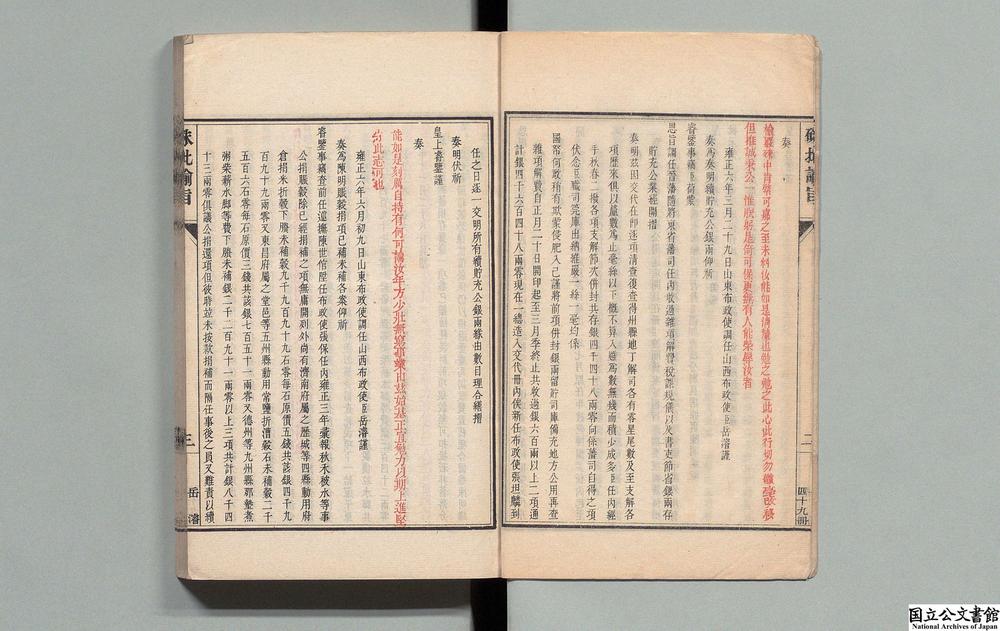 硃批諭旨
二
四十九冊
奏
雍正六年三月二十九日山東布政使調任山西布政使臣岳濬謹
奏爲奏明續貯充公銀兩仰祈
睿鑒事竊臣荷蒙
恩旨調任晉藩隨將東省藩司任內收過雜項解費税課規儀以及書吏節省銀兩存
貯充公業經開摺
奏明茲因交代在即逐項清查復查得州縣地丁解司各有零星尾數及至支解各
項歷來俱以釐數爲止毫絲以下概不算入雖爲數無幾而積少成多臣任內經
手秋春二撥各項支解節次併封共存銀四千四十八兩零向係藩司自得之項
伏念臣職司筦庫出納維嚴一絲一毫均係
國帑何敢稍有欺蒙侵肥入己謹將前項併封銀兩留貯司庫備充地方公用再查
雜項解費自正月二十日開印起至三月季終止共收過銀六百兩以上二項通
計銀四千六百四十八兩零現在一總造入交代冊內俟新任布政使張坦麟到
任之日逐一交明所有續貯充公銀兩緣由數目理合繕摺
奏明伏祈
皇上睿鑒謹
奏
能如是刻厲自持有何可諭汝年方少壯無窮事業由茲始基正宜勉力以期上進堅
如此志可也
雍正六年六月初九日山東布政使調任山西布政使臣岳濬謹
奏爲陳明賑穀捐項已補未補各案仰祈
睿鑒事竊查前任巡撫陳世倌歷任布政使張保任內雍正三年彙報秋禾被水等事
公捐賑穀除已經捐補之項無庸開列外尚有濟南府屬之歷城等四縣動用府
倉捐米折穀下賸未補穀九千九百九十九石零每石原價五錢共該銀四千九
百九十九兩零又東昌府屬之堂邑等五州縣動用常鹽折漕穀石未補穀二千
五百六石零每石原價三錢共該銀七百五十一兩零又德州等九州縣郭墊煮
粥柴薪水腳等費下賸未補銀二千二百九十一兩零以上三項共計銀八千四
十三兩零俱議公捐還項但彼時並未按款捐補而隔任事後之員又難責以續
硃批諭旨
三
岳濬
国立公文書館
National Archives of Japan